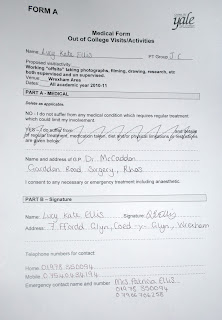 FORM A
yale
Medical Form
Out of College Visits/Activities
Name: Lucy Kate Ellis PT Group J
Proposed visits/activity
Working "offsite" taking photographs, filming, drawing, research, etc
both supervised and un supervised.
Venue Wrexham Area
Dates All academic year 2010-11
PART A - MEDICAL
Delete as applicable:
NO - I do not suffer from any medical condition which requires regular treatment
which could limit my involvement.
YES - I do suffer from and details
of regular treatment, medication taken, diet and/or physical limitations or restrictions
are given below
Name and address of G.P. Dr. McCaddon
Road Surgery, Rhos
I consent to any necessary or emergency treatment including anaesthetic.
PART B - Signature
Name: Lucy Kate Ellis Signature
Address: 7 Ffordd Glyn, Coed-y-Glyn, Wrexham
Telephone numbers for contact:
Home: 01978 350094
Mobile:
Emergency contact name and number: Mrs Patricia Ellis
01978 350094
07966706258